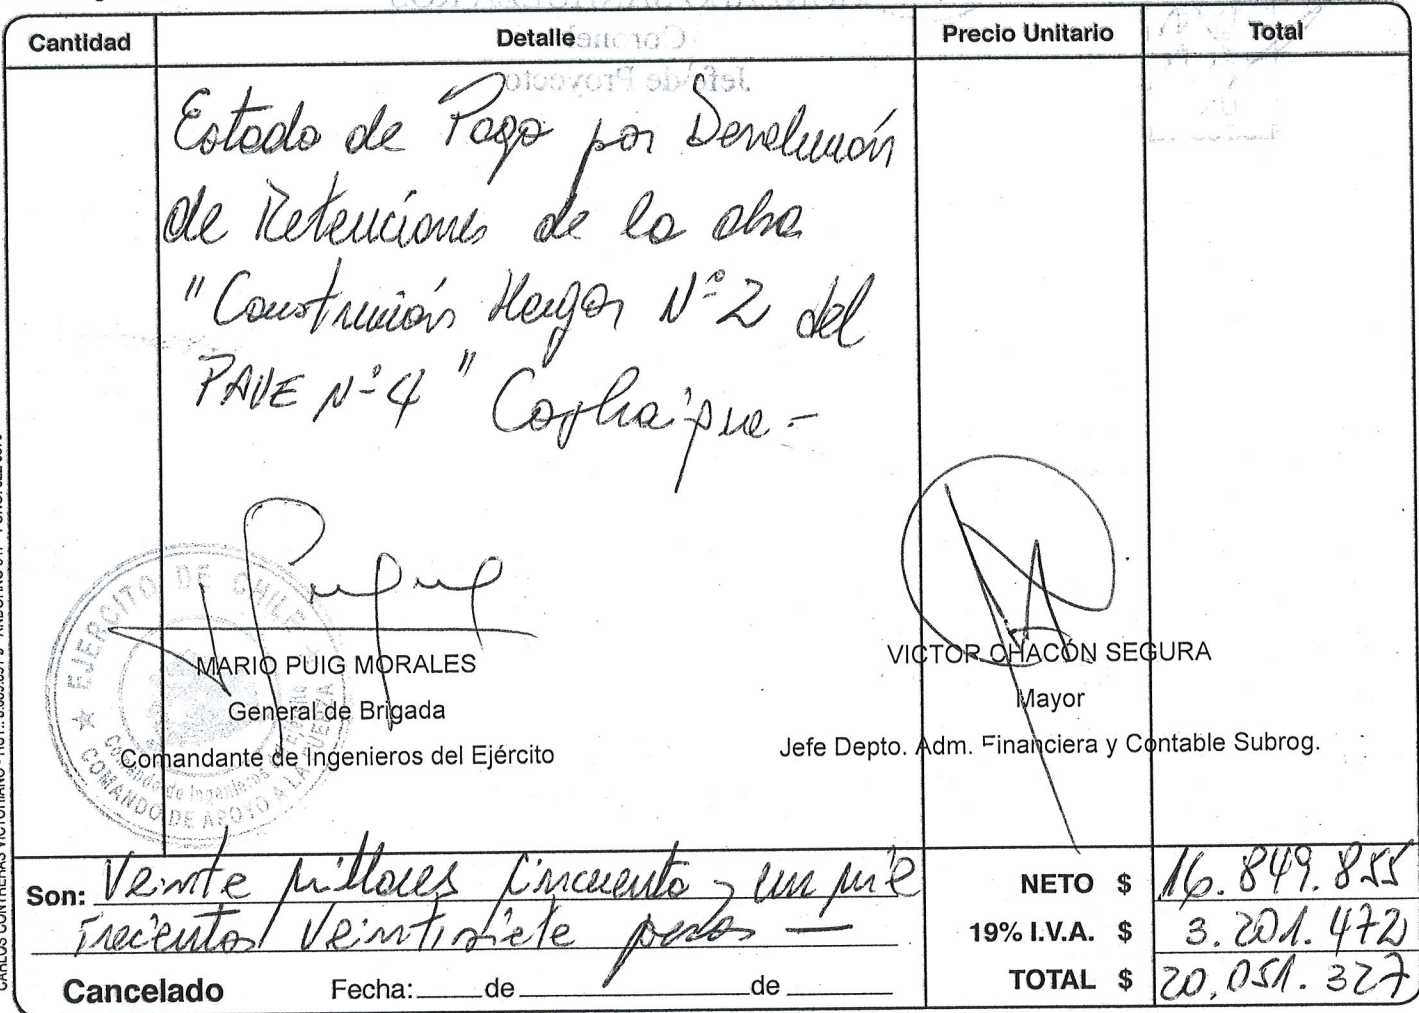 Cantidad Detalle Precio Unitario Total
Coronel
Jefe de Proyecto
Estado de Pago por Devolución
de Retenciones de la obra
"Construcción Hangar N° 2 del
PAVE N° 4" Coyhaique.-
EJERCITO DE CHILE
COMANDO DE APOYO A LA FUERZA
Comando de Ingenieros
MARIO PUIG MORALES
General de Brigada
Comandante de Ingenieros del Ejército
VICTOR CHACÓN SEGURA
Mayor
Jefe Depto. Adm. Financiera y Contable Subrog.
Son: Veinte millones cincuenta y un mil
Trecientos Veintisiete pesos —
NETO $ 16.849.855
19% I.V.A. $ 3.201.472
TOTAL $ 20.051.327
Cancelado Fecha: ____ de ____ de ____
CARLOS CONTRERAS VICTORIANO